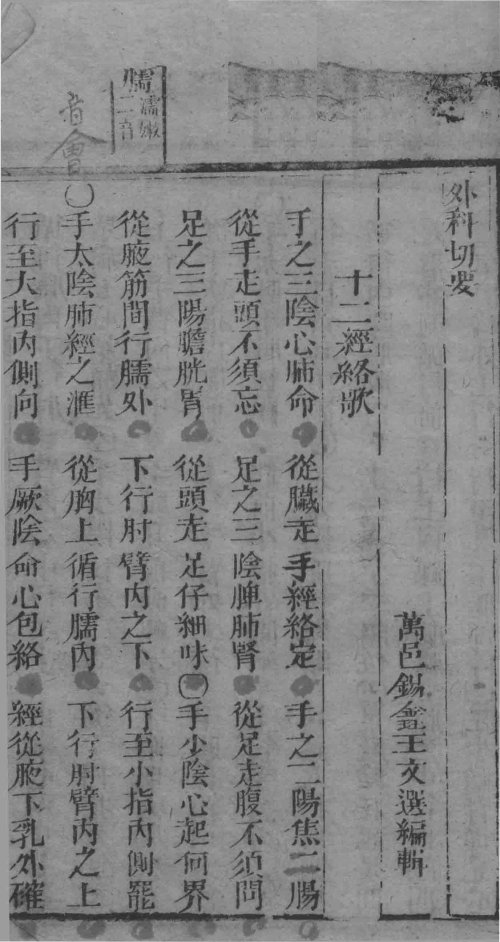 外科切要
萬邑錫鑫王文選編輯
十二經絡歌
手之三陰心肺命 從臟走手經絡定 手之二陽焦二腸
從手走頭不須忘 足之三陰脾肺腎 從足走腹不須問
足之三陽膽胱胃 從頭走足仔細味〇手少陰心起何界
從腋筋間行臑外 下行肘臂內之下 行至小指內側罷
〇手太陰肺經之滙 從胸上循行臑內 下行肘臂內之上
行至大指內側向 手厥陰命心包絡 經從腋下乳外確
臑濡嫩
二音
音會